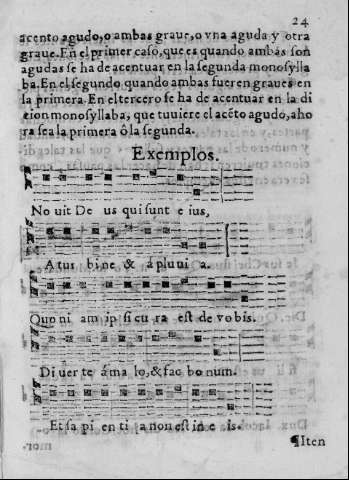 24
acento agudo, o ambas graue, o vna aguda y otra
graue. En el primer caso, que es quando ambas son
agudas se ha de acentuar en la segunda monosylla
ba. En el segundo quando ambas fueren graues en
la primera. En el tercero se ha de acentuar en la di
cion monosyllaba, que tuuiere el acẽto agudo, aho
ra sea la primera ò la segunda.
Exemplos.
No uit De us qui sunt e ius,
A tus bi ne & á plu ui a.
Quo ni am ip si cu ra est de vo bis.
Di uer te á ma lo, & fac bo num.
Et sa pi en ti a non est in e is.
¶Iten